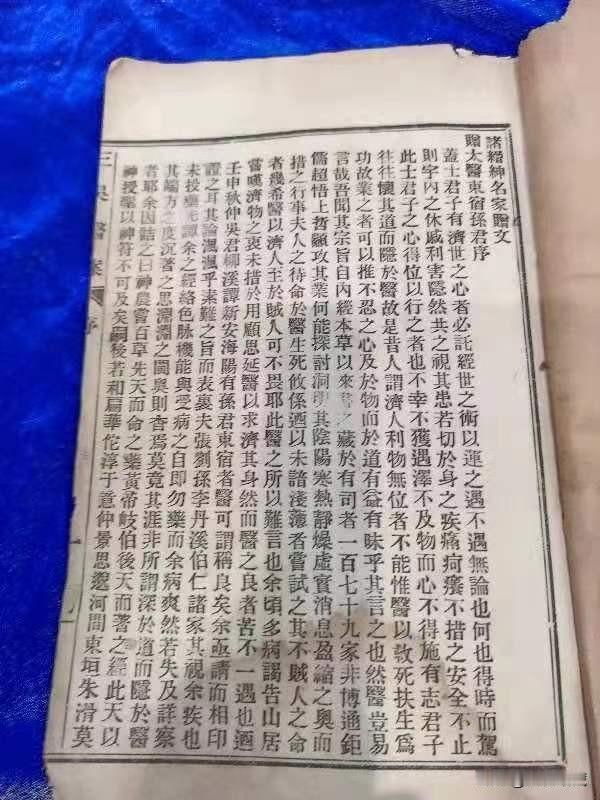 諸縉紳名家贈文
贈太醫東宿孫君序
蓋士君子有濟世之心者必託經世之術以運之遇不遇無論也何也得時而駕
則宇內之休戚利害隱然共之視其患若切於身之疾痛疴癢不措之安全不止
此士君子之心得位以行之者也不幸不獲遇澤不及物而心不得施有志君子
往往懷其道而隱於醫故是昔人謂濟人利物無位者不能惟醫以救死扶生為
功故業之者可以推不忍之心及於物而於道有益有味乎其言之也然醫豈易
言哉吾聞其宗旨自內經本草以來書之藏於有司者一百七十九家非博通鉅
儒超悟上哲顓攻其業何能探討洞明其陰陽寒熱靜燥虛實消息盈縮之奧而
措之行事夫人之待命於醫生死攸係迺以未諳淺薄者嘗試之其不賊人之命
者幾希醫以濟人至於賊人可不畏耶此醫之所以難言也余頃多病謁告山居
嘗嘆濟物之衷未措於用顧思延醫以求濟其身然而醫之良者苦不一遇也迺
壬申秋仲吳君柳溪譚新安海陽有孫君東宿者醫可謂稱良矣余亟請而相印
證之耳其論渢渢乎素難之旨而表裏夫張劉孫李丹溪伯仁諸家其視余疾也
未投藥先譚余之經絡色脈機能與受病之自即勿藥而余病爽然若失及詳察
其端方之度沉著之思淵淵之閫奧則杳焉莫竟其涯非所謂深於道而隱於醫
者耶余因詰之曰神農嘗百草先天而命之藥黃帝岐伯後天而著之經此天以
神授毫以神符不可及矣嗣後若和扁華佗淳于意仲景思邈河間東垣朱滑莫
三吳醫案
序